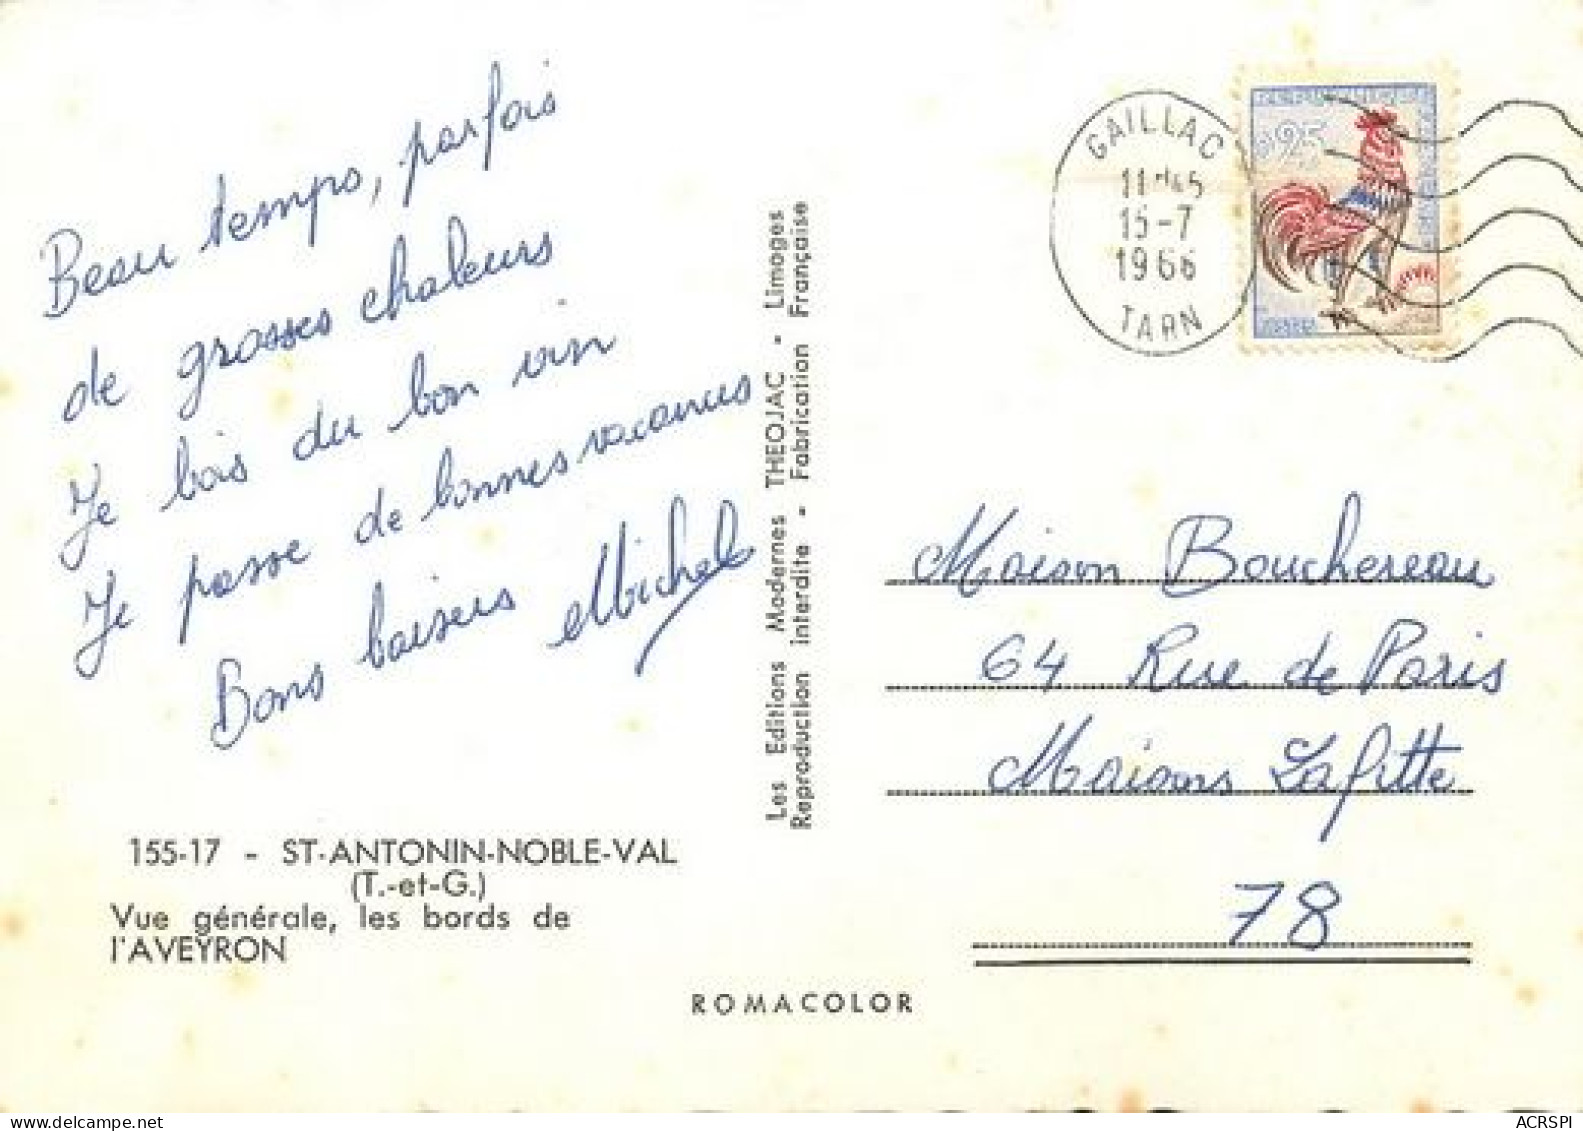 Beau temps, parfois
de grosses chaleurs
Je bois du bon vin
Je passe de bonnes vacances
Bons baisers Michel
155-17 - ST-ANTONIN-NOBLE-VAL
(T.-et-G.)
Vue générale, les bords de
l'AVEYRON
Les Editions Modernes THEOJAC - Limoges
Reproduction interdite - Fabrication Française
ROMACOLOR
GAILLAC
15-7
1966
TARN
REPUBLIQUE
0,25
Maison Bouchereau
64 Rue de Paris
Maisons Lafitte
78
www.delcampe.net
ACRSPI